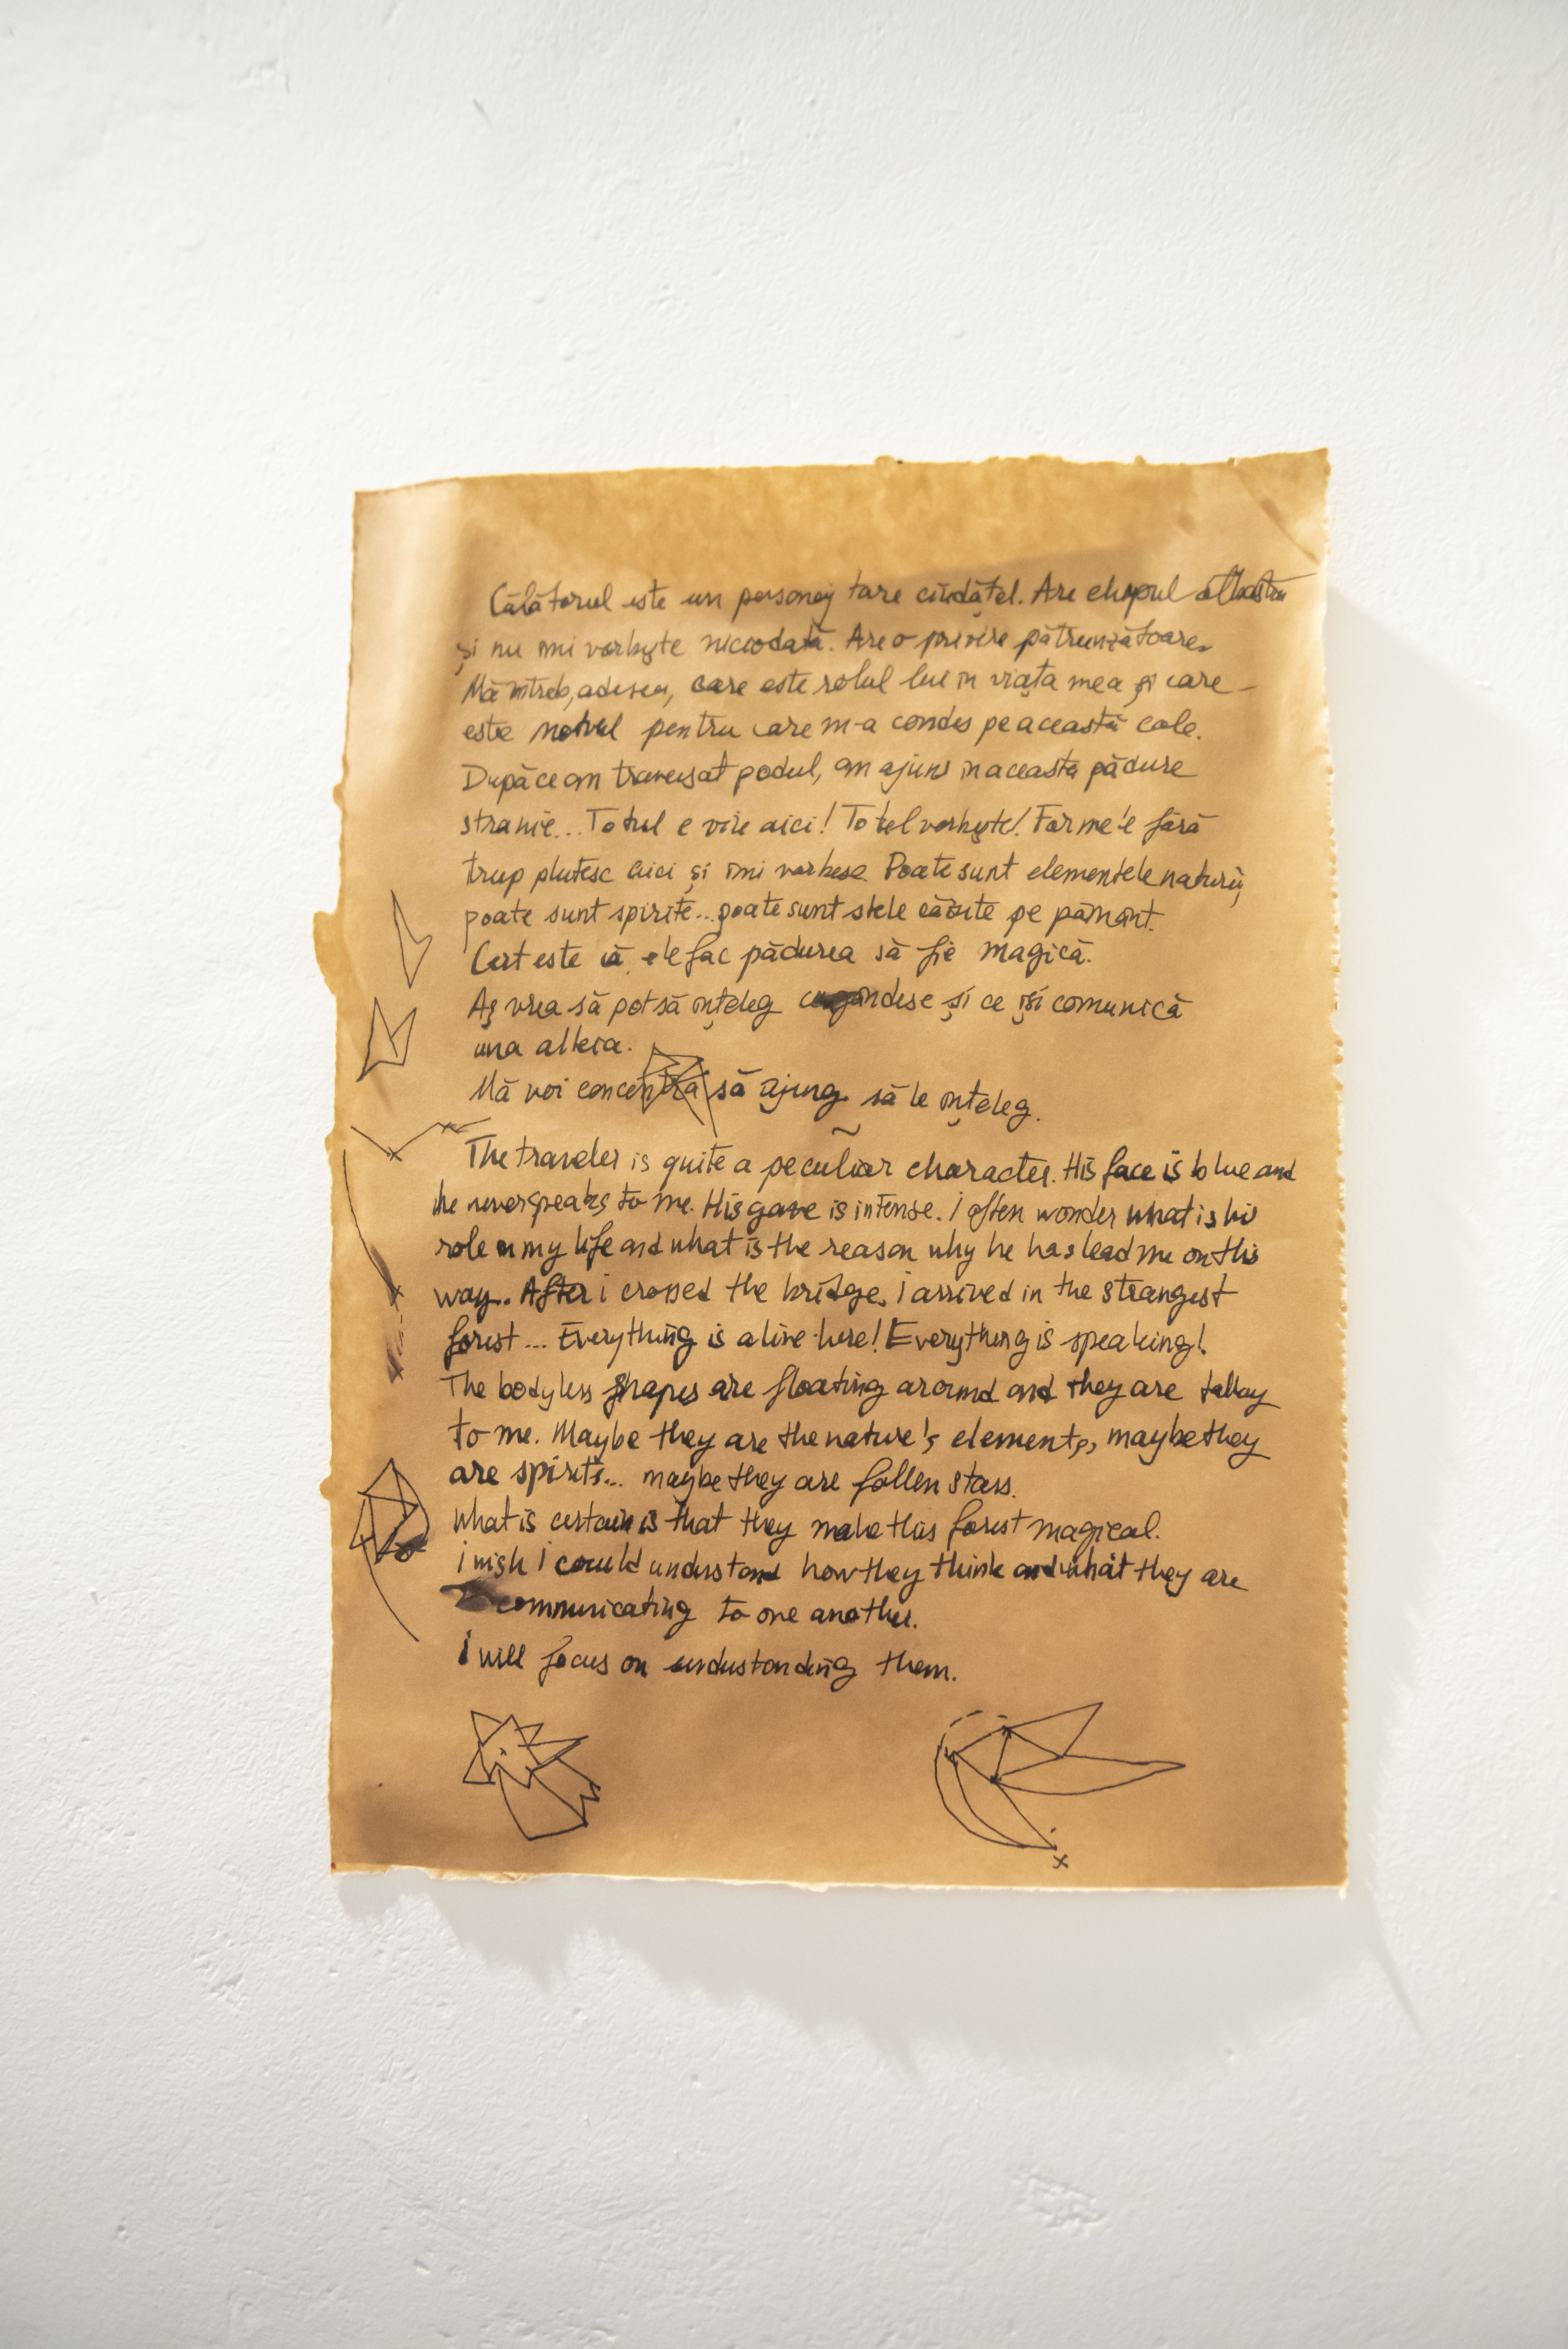 Călătorul este un personaj tare ciudățel. Are chipul albastru
și nu îmi vorbește niciodată. Are o privire pătrunzătoare.
Mă întreb, adesea, care este rolul lui în viața mea și care -
este motivul pentru care m-a condus pe această cale.
După ce am traversat podul, am ajuns în aceasta pădure
stranie... Totul e viu aici! Totul vorbește! Formele fără
trup plutesc aici și îmi vorbesc. Poate sunt elementele naturii,
poate sunt spirite... poate sunt stele căzute pe pământ.
Cert este că ele fac pădurea să fie magică.
Aș vrea să pot să înțeleg ce gândesc și ce își comunică
una alteia.
Mă voi concentra să ajung să le înțeleg.
~
The traveler is quite a peculiar character. His face is blue and
he never speaks to me. His gaze is intense. I often wonder what is his
role in my life and what is the reason why he has lead me on this
way. After i crossed the bridge, i arrived in the strangest
forest... Everything is alive here! Everything is speaking!
The bodyless shapes are floating around and they are talking
to me. Maybe they are the nature's elements, maybe they
are spirits... maybe they are fallen stars.
What is certain is that they make this forest magical.
i wish i could understand how they think and what they are
communicating to one another.
i will focus on understanding them.